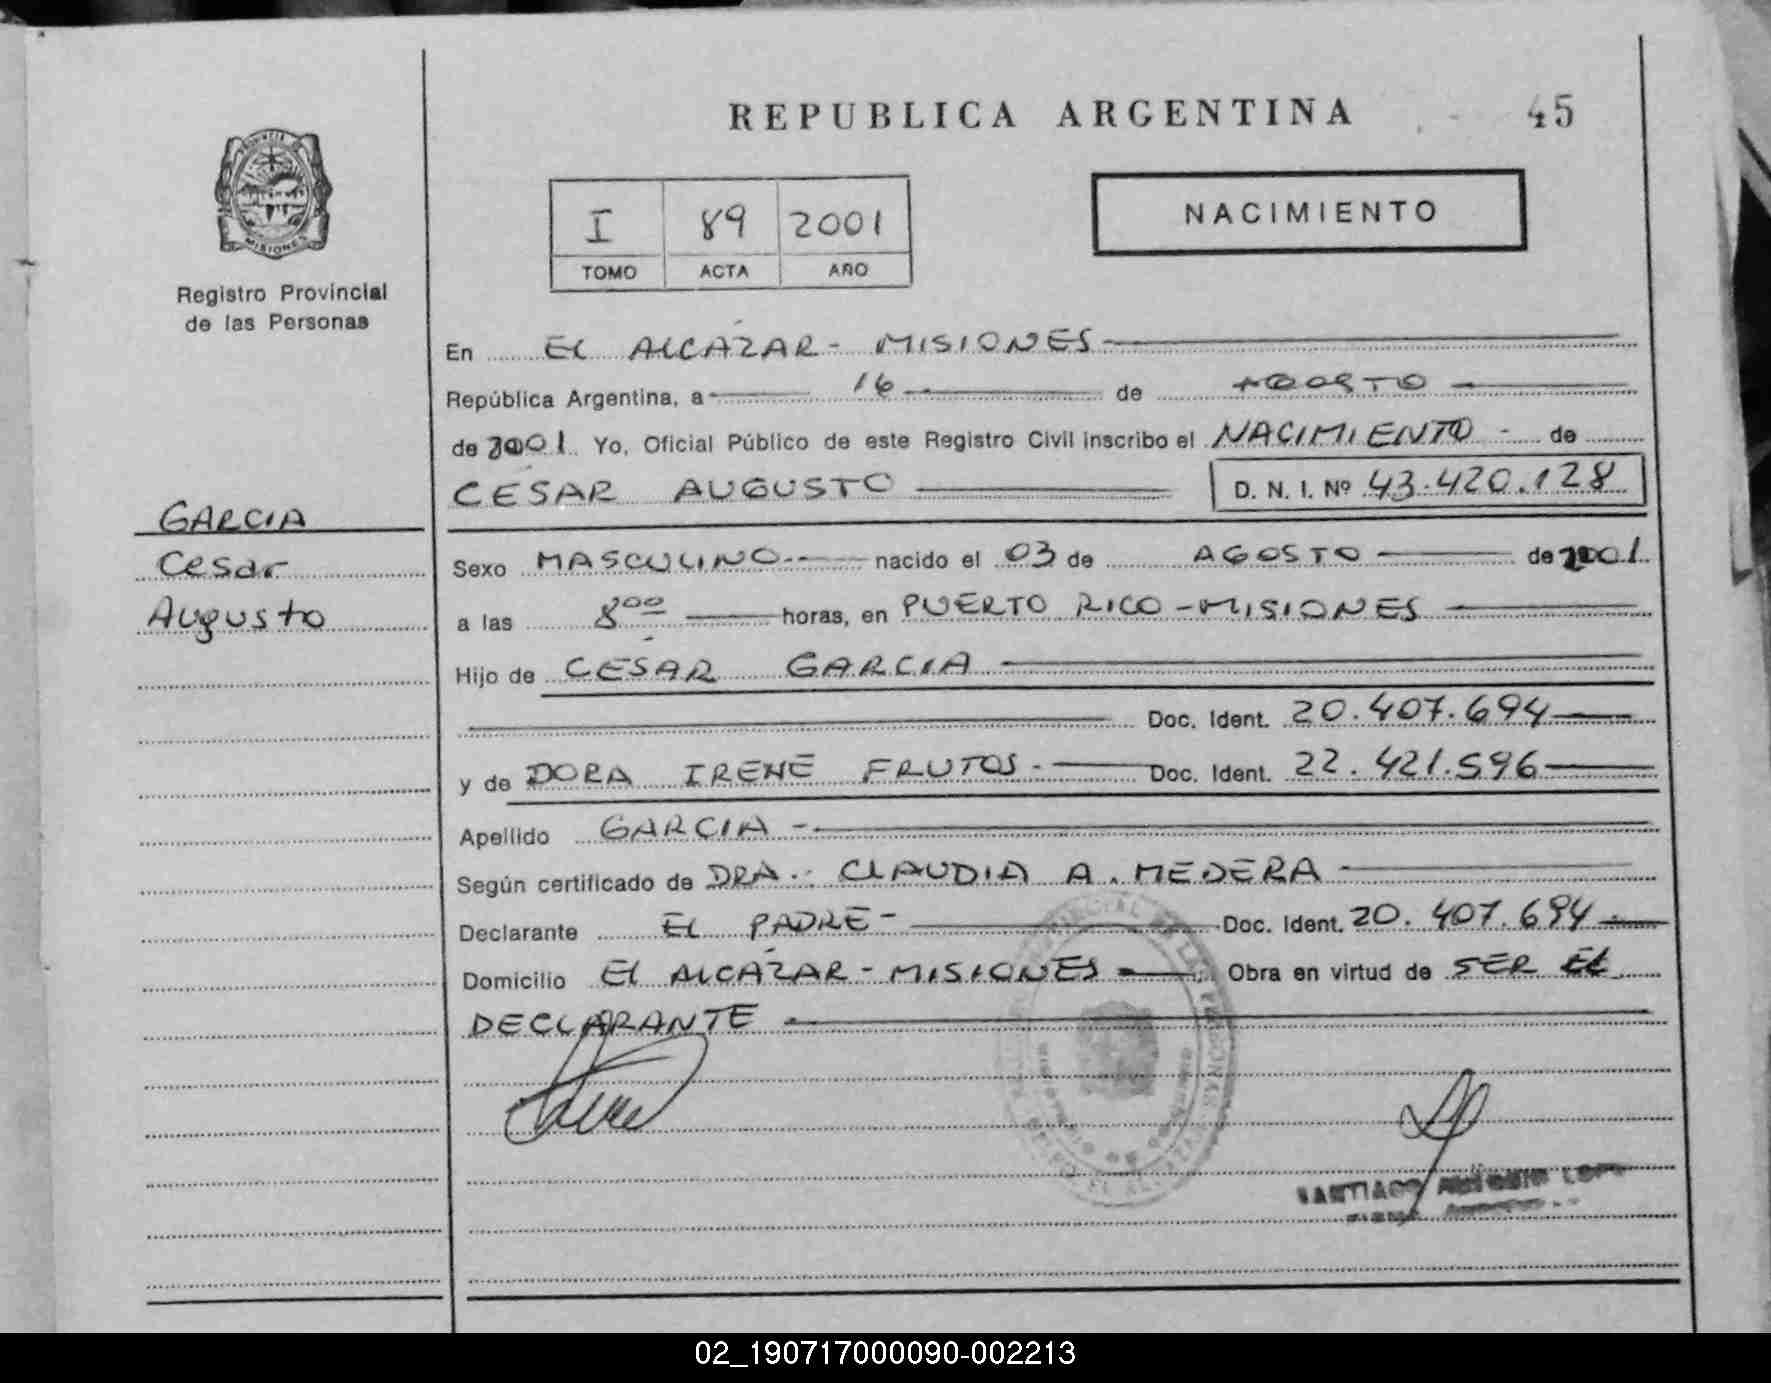 REPUBLICA ARGENTINA
45
PROVINCIA DE
MISIONES
Registro Provincial
de las Personas
I 89 2001
TOMO ACTA AÑO
NACIMIENTO
En EL ALCAZAR - MISIONES
República Argentina, a 16 de AGOSTO
de 2001 Yo, Oficial Público de este Registro Civil inscribo el NACIMIENTO - de
CESAR AUGUSTO D. N. I. Nº 43.420.128
GARCIA
Cesar
Augusto
Sexo MASCULINO nacido el 03 de AGOSTO de 2001
a las 8 00 horas, en PUERTO RICO - MISIONES
Hijo de CESAR GARCIA
Doc. Ident. 20.407.694
y de DORA IRENE FRUTOS - Doc. Ident. 22.421.596
Apellido GARCIA -
Según certificado de DRA. CLAUDIA A. MEDERA
Declarante EL PADRE - Doc. Ident. 20.407.694
Domicilio EL ALCAZAR - MISIONES Obra en virtud de SER EL
DECLARANTE
SANTIAGO
02_190717000090-002213